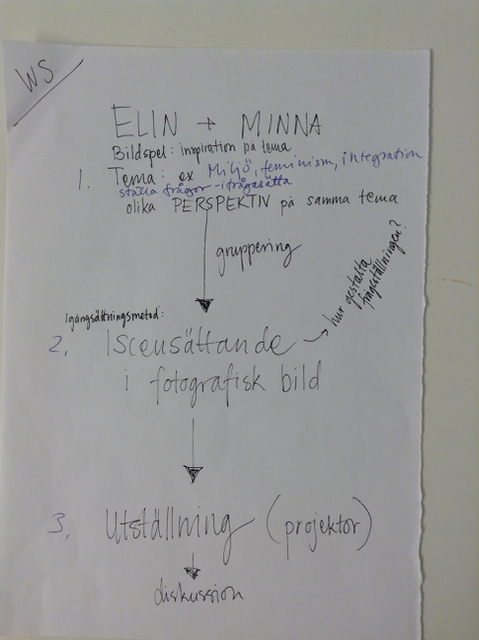 WS
ELIN + MINNA
Bildspel: inspiration på tema
1. Tema: ex Miljö, feminism, integration
ställa frågor - ifrågasätta
olika PERSPEKTIV på samma tema
gruppering
Igångsättningsmetod:
2. Iscensättande → hur gestalta
frågeställningen?
i fotografisk bild
3. Utställning (projektor)
diskussion